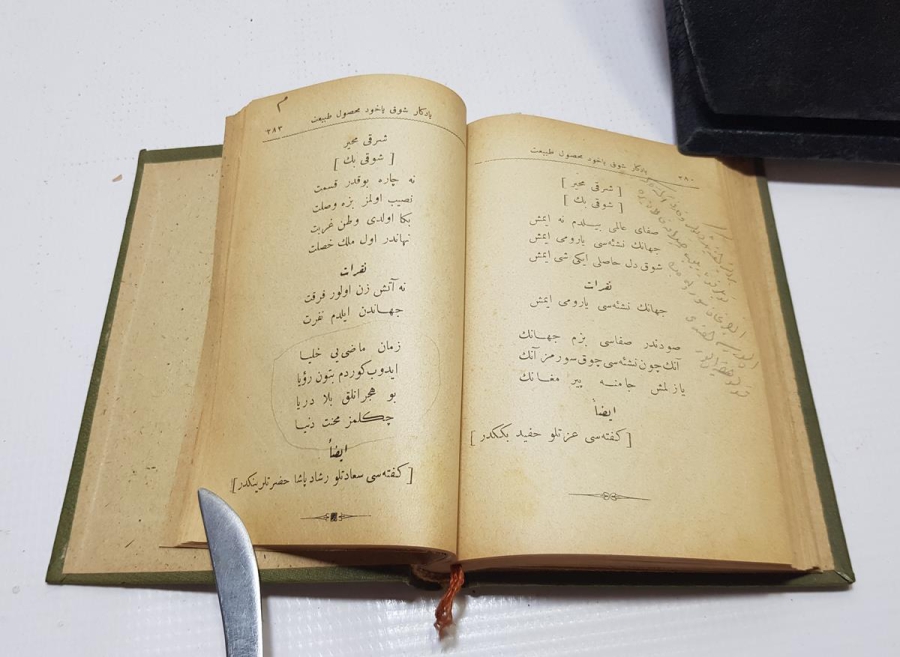 یادکار شوقی یاخود محصول طبیعت
٢٨٠
[ شرقی محیر ]
[ شوقی بك ]
صفای عالمی بیسلدم نه ایمش
جهانك نشئه‌سی یارومی ایمش
شوق دل حاصلی ایکی شی ایمش
نقرات
جهانك نشئه‌سی یارومی ایمش
صودندر صفاسی بزم جهانك
آنك چون نشئه‌سی چوق سورمز آنك
یازلمش جامنه پیر مغانك
ایضاً
[ کفته‌سی عزتلو حفید بككدر ]
یادکار شوقی یاخود محصول طبیعت
٢٨٣
م
شرقی محیر
[ شوقی بك ]
نه چاره بوقدر قسمت
نصیب اولمز بزه وصلت
بکا اولدی وطن غربت
نهاندر اول ملك خصلت
نقرات
نه آتش زن اولور فرقت
جهاندن ایلدم نفرت
زمان ماضی‌یی خلیا
ایدوب کوردم بتون رؤیا
بو هجرانلق بلا دریا
چکلمز محنت دنیا
ایضاً
[ کفته‌سی سعادتلو رشاد پاشا حضرتلرینکدر ]